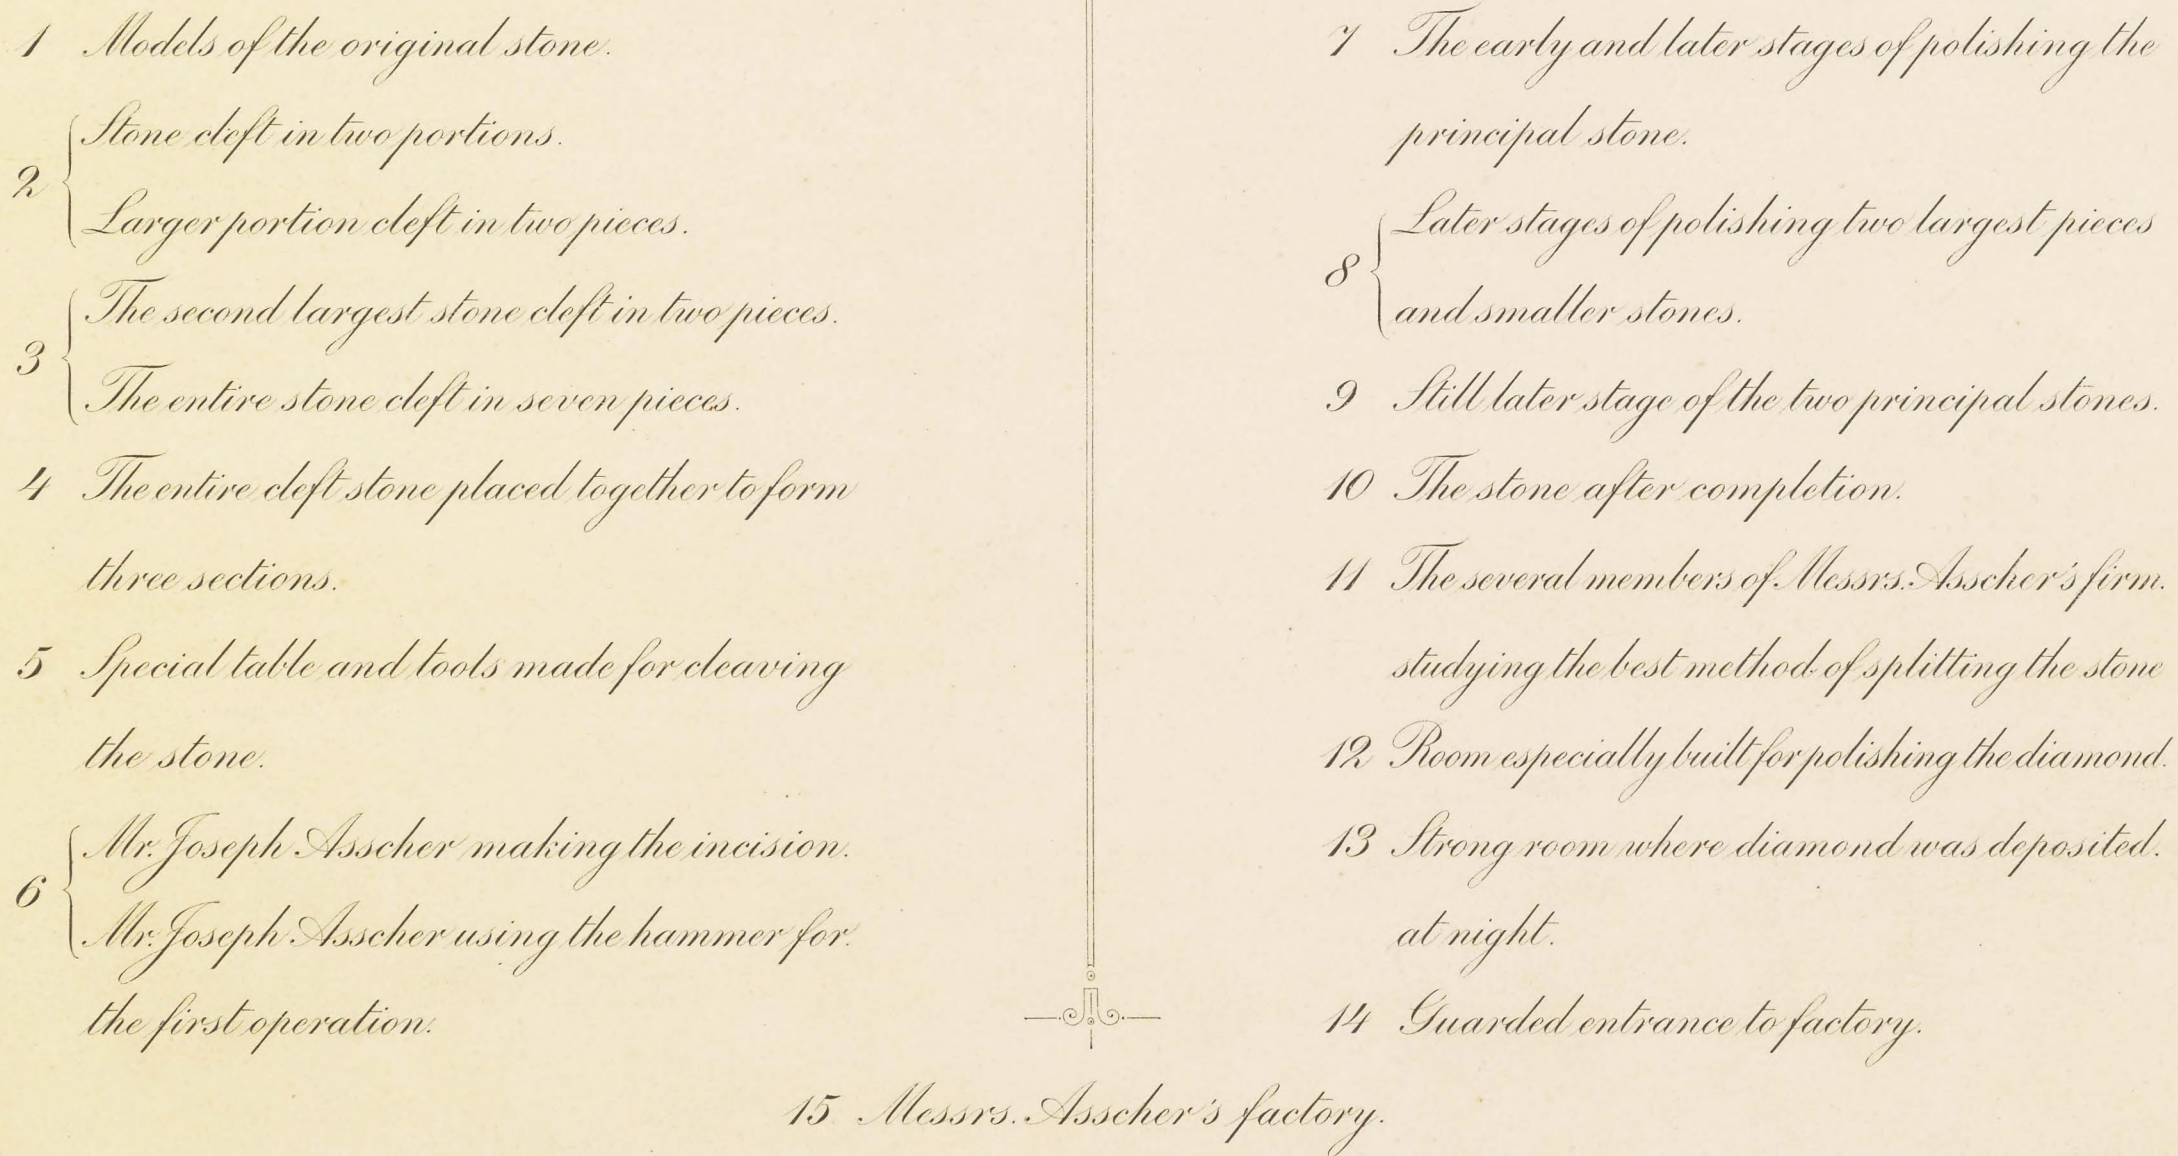 1 Models of the original stone.
2 Stone cleft in two portions.
Larger portion cleft in two pieces.
3 The second largest stone cleft in two pieces.
The entire stone cleft in seven pieces.
4 The entire cleft stone placed together to form
three sections.
5 Special table and tools made for cleaving
the stone.
6 Mr. Joseph Asscher making the incision.
Mr. Joseph Asscher using the hammer for.
the first operation.
7 The early and later stages of polishing the
principal stone.
8 Later stages of polishing two largest pieces
and smaller stones.
9 Still later stage of the two principal stones.
10 The stone after completion.
11 The several members of Messrs. Asscher's firm.
studying the best method of splitting the stone
12 Room especially built for polishing the diamond.
13 Strong room where diamond was deposited.
at night.
14 Guarded entrance to factory.
15 Messrs. Asscher's factory.